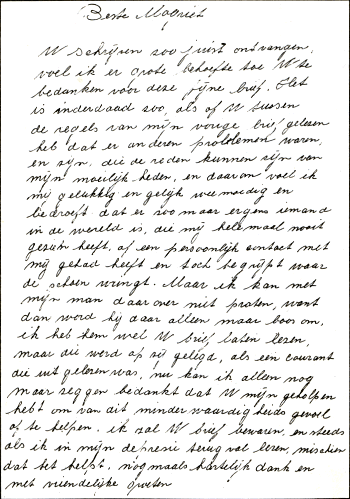 Beste Magriet
U schrijven zoo juist ontvangen,
voel ik er grote behoefte toe U te
bedanken voor deze fijne brief. Het
is inderdaad zoo, als of U tussen
de regels van mijn vorige brief gelezen
heb dat er anderen problemen waren,
en zijn, die de reden kunnen zijn van
mijn moeilijk-heden, en daarom voel ik
mij gelukkig en gelijk weemoedig en
bedroeft dat er zoo maar ergens iemand
in de wereld is, die mij helemaal nooit
gezien heeft, of een persoonlijk contact met
mij gehad heeft en toch begrijpt waar
de schoen wringt. Maar ik kan met
mijn man daar over niet praten, want
dan word hij daar alleen maar boos om,
ik heb hem wel U brief laten lezen,
maar die werd op zij gelegd, als een courant
die uit gelezen was, nu kan ik alleen nog
maar zeggen bedankt dat U mijn geholpen
hebt om van dit minder waardig heids gevoel
af te helpen. ik zal U brief bewaren, en steeds
als ik in mijn depresie terug val lezen, misschien
dat het helpt, nogmaals hartelijk dank en
met vriendelijke groeten